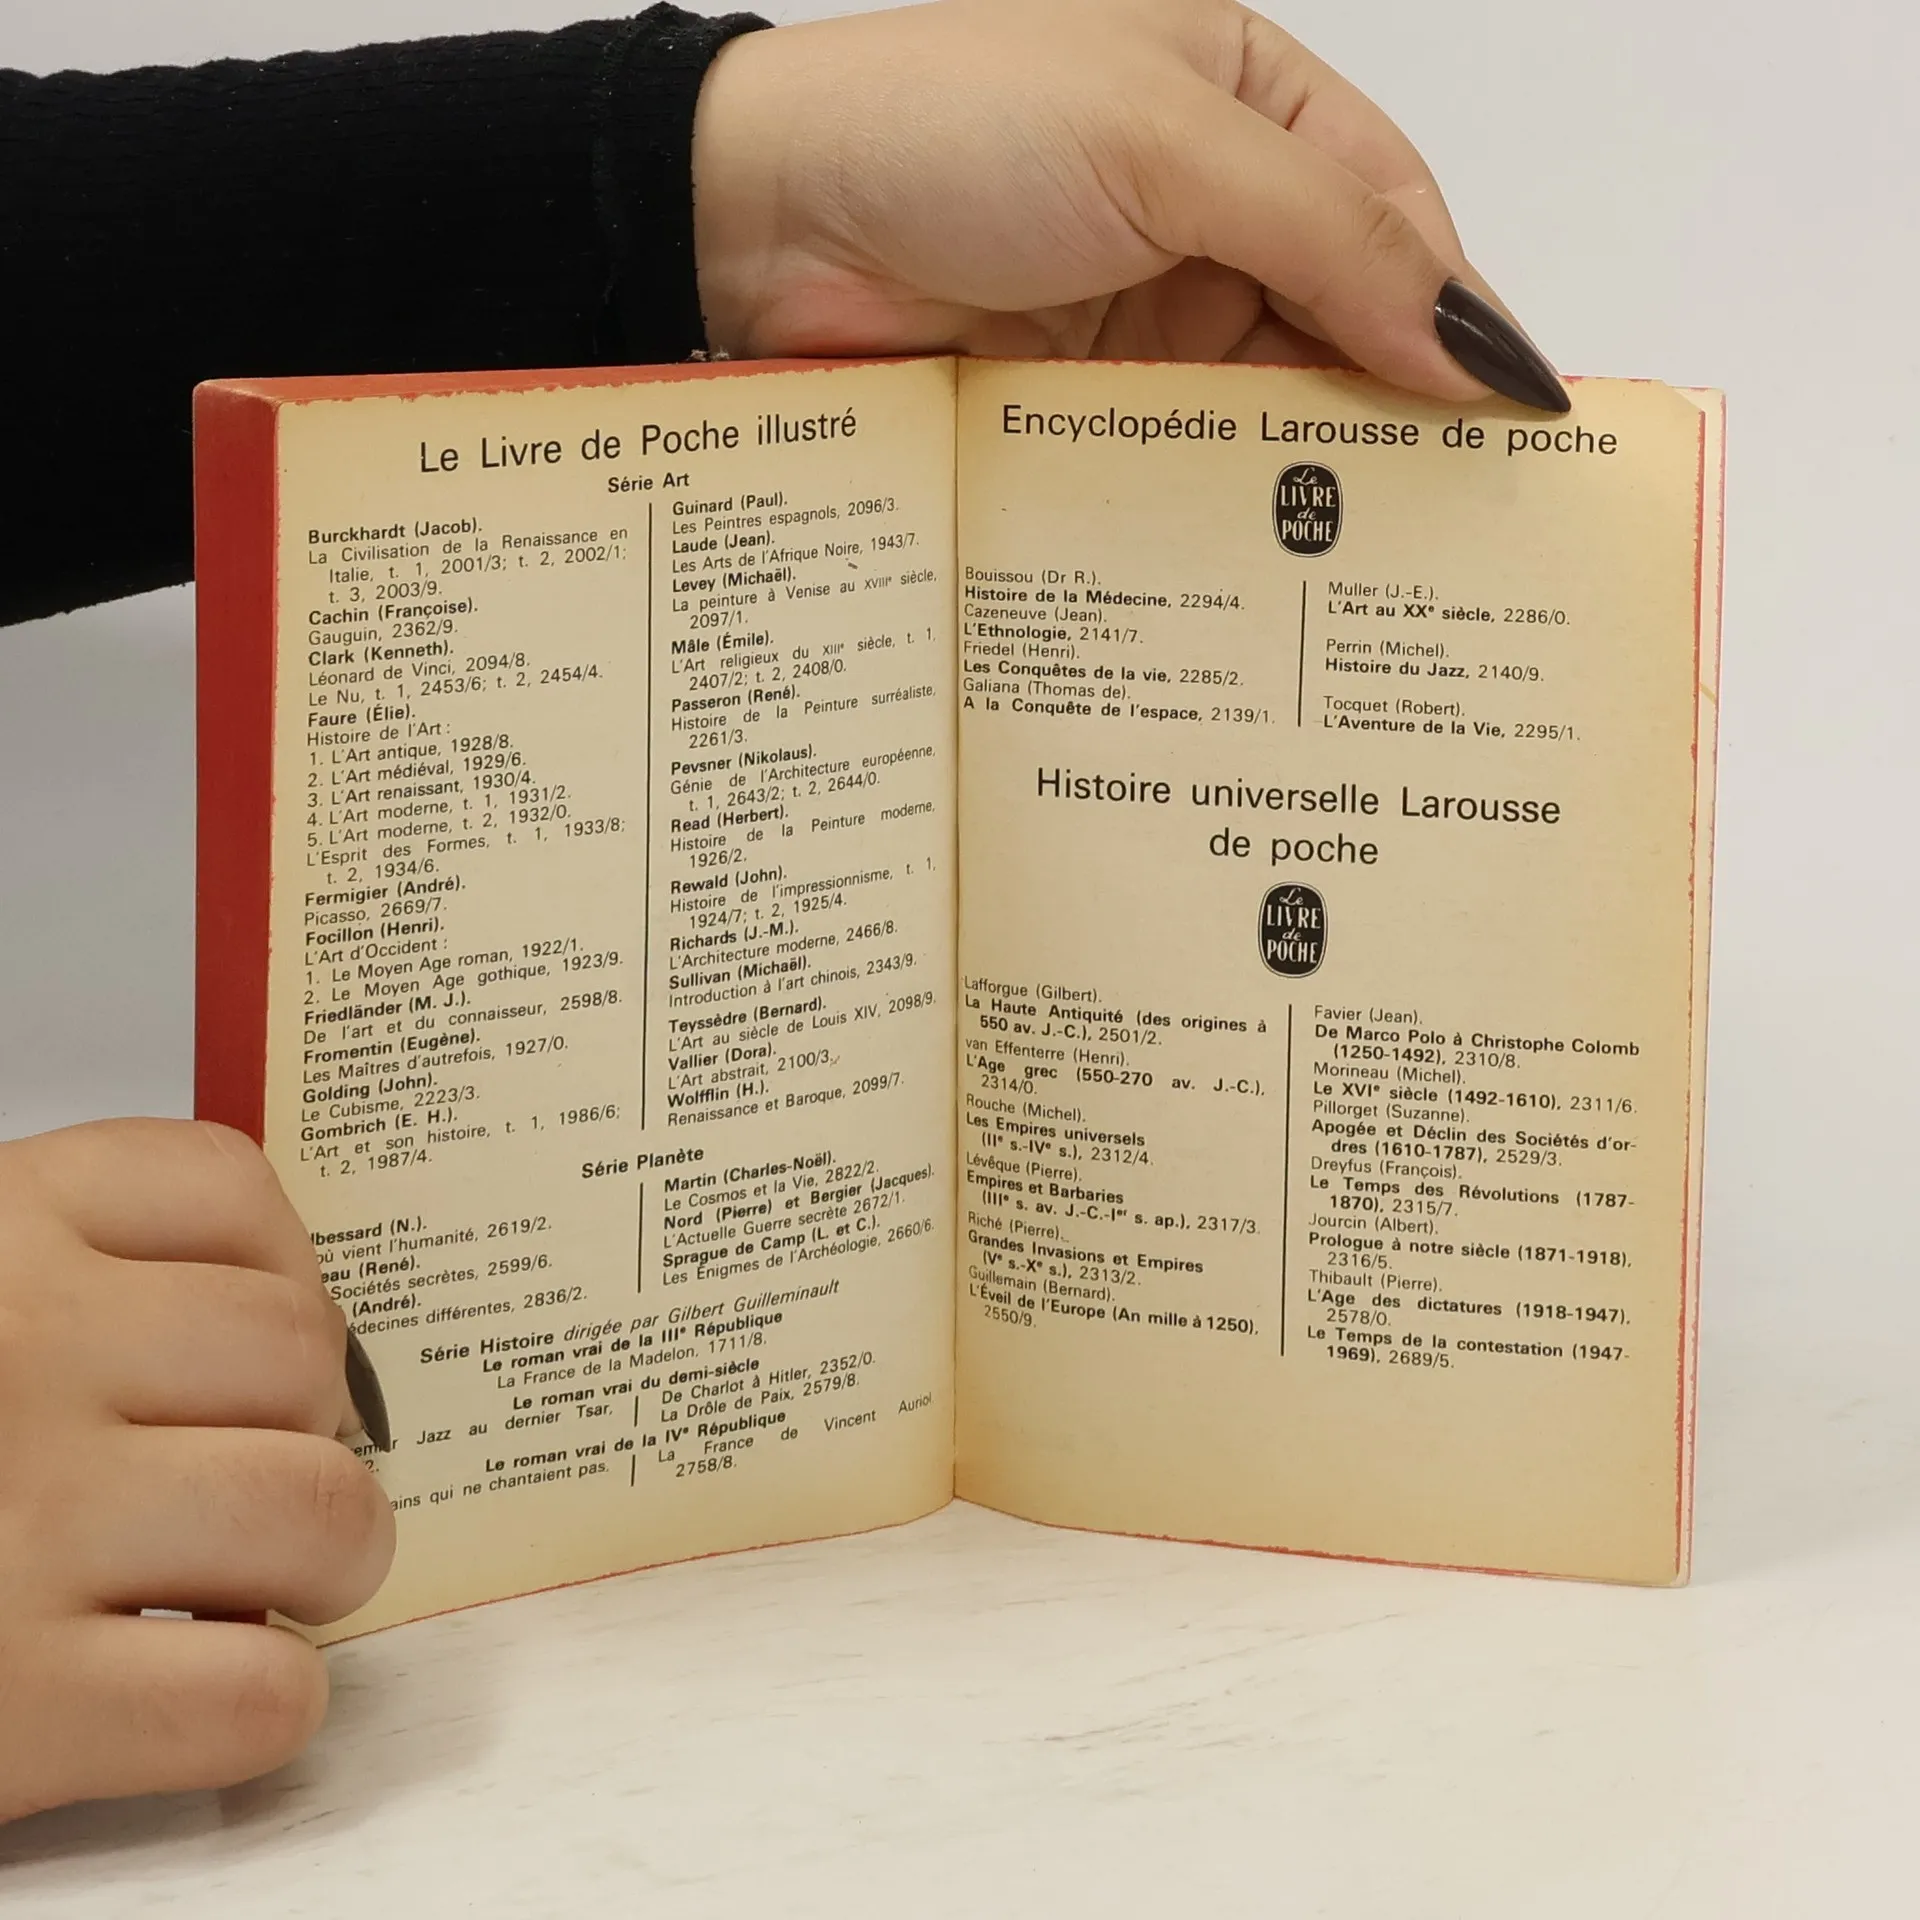 Le Livre de Poche illustré
Série Art
Burckhardt (Jacob).
La Civilisation de la Renaissance en
Italie, t. 1, 2001/3; t. 2, 2002/1;
t. 3, 2003/9.
Cachin (Françoise).
Gauguin, 2362/9.
Clark (Kenneth).
Léonard de Vinci, 2094/8.
Le Nu, t. 1, 2453/6; t. 2, 2454/4.
Faure (Élie).
Histoire de l'Art :
1. L'Art antique, 1928/8.
2. L'Art médiéval, 1929/6.
3. L'Art renaissant, 1930/4.
4. L'Art moderne, t. 1, 1931/2.
5. L'Art moderne, t. 2, 1932/0.
L'Esprit des Formes, t. 1, 1933/8;
t. 2, 1934/6.
Fermigier (André).
Picasso, 2669/7.
Focillon (Henri).
L'Art d'Occident :
1. Le Moyen Age roman, 1922/1.
2. Le Moyen Age gothique, 1923/9.
Friedländer (M. J.).
De l'art et du connaisseur, 2598/8.
Fromentin (Eugène).
Les Maîtres d'autrefois, 1927/0.
Golding (John).
Le Cubisme, 2223/3.
Gombrich (E. H.).
L'Art et son histoire, t. 1, 1986/6;
t. 2, 1987/4.
Guinard (Paul).
Les Peintres espagnols, 2096/3.
Laude (Jean).
Les Arts de l'Afrique Noire, 1943/7.
Levey (Michaël).
La peinture à Venise au XVIIIe siècle,
2097/1.
Mâle (Émile).
L'Art religieux du XIIIe siècle, t. 1,
2407/2; t. 2, 2408/0.
Passeron (René).
Histoire de la Peinture surréaliste,
2261/3.
Pevsner (Nikolaus).
Génie de l'Architecture européenne,
t. 1, 2643/2; t. 2, 2644/0.
Read (Herbert).
Histoire de la Peinture moderne,
1926/2.
Rewald (John).
Histoire de l'impressionnisme, t. 1,
1924/7; t. 2, 1925/4.
Richards (J.-M.).
L'Architecture moderne, 2466/8.
Sullivan (Michaël).
Introduction à l'art chinois, 2343/9.
Teyssèdre (Bernard).
L'Art au siècle de Louis XIV, 2098/9.
Vallier (Dora).
L'Art abstrait, 2100/3.
Wolfflin (H.).
Renaissance et Baroque, 2099/7.
Série Planète
lbessard (N.).
où vient l'humanité, 2619/2.
eau (René).
Sociétés secrètes, 2599/6.
(André).
édecines différentes, 2836/2.
Martin (Charles-Noël).
Le Cosmos et la Vie, 2822/2.
Nord (Pierre) et Bergier (Jacques).
L'Actuelle Guerre secrète 2672/1.
Sprague de Camp (L. et C.).
Les Énigmes de l'Archéologie, 2660/6.
Série Histoire dirigée par Gilbert Guilleminault
Le roman vrai de la IIIe République
La France de la Madelon, 1711/8.
Le roman vrai du demi-siècle
Jazz au dernier Tsar,
2.
De Charlot à Hitler, 2352/0.
La Drôle de Paix, 2579/8.
Le roman vrai de la IVe République
ains qui ne chantaient pas.
La France de Vincent Auriol
2758/8.
Encyclopédie Larousse de poche
Le
LIVRE
de
POCHE
Bouissou (Dr R.).
Histoire de la Médecine, 2294/4.
Cazeneuve (Jean).
L'Ethnologie, 2141/7.
Friedel (Henri).
Les Conquêtes de la vie, 2285/2.
Galiana (Thomas de).
A la Conquête de l'espace, 2139/1.
Muller (J.-E.).
L'Art au XXe siècle, 2286/0.
Perrin (Michel).
Histoire du Jazz, 2140/9.
Tocquet (Robert).
L'Aventure de la Vie, 2295/1.
Histoire universelle Larousse
de poche
Le
LIVRE
de
POCHE
Lafforgue (Gilbert).
La Haute Antiquité (des origines à
550 av. J.-C.), 2501/2.
van Effenterre (Henri).
L'Age grec (550-270 av. J.-C.),
2314/0.
Rouche (Michel).
Les Empires universels
(IIe s.-IVe s.), 2312/4.
Lévêque (Pierre).
Empires et Barbaries
(IIIe s. av. J.-C.-Ier s. ap.), 2317/3.
Riché (Pierre).
Grandes Invasions et Empires
(Ve s.-Xe s.), 2313/2.
Guillemain (Bernard).
L'Éveil de l'Europe (An mille à 1250),
2550/9.
Favier (Jean).
De Marco Polo à Christophe Colomb
(1250-1492), 2310/8.
Morineau (Michel).
Le XVIe siècle (1492-1610), 2311/6.
Pillorget (Suzanne).
Apogée et Déclin des Sociétés d'or-
dres (1610-1787), 2529/3.
Dreyfus (François).
Le Temps des Révolutions (1787-
1870), 2315/7.
Jourcin (Albert).
Prologue à notre siècle (1871-1918),
2316/5.
Thibault (Pierre).
L'Age des dictatures (1918-1947),
2578/0.
Le Temps de la contestation (1947-
1969), 2689/5.